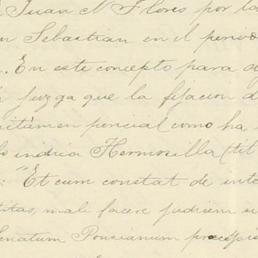 Juan N Flores por la
n Sebastian en el perio
. En este concepto para d
juzga que la fijacion d
ctámen pericial (como ha
indica Hermosilla (tít
: "Et cum constat de inte
titas, male facere judicem si
enatum Ponsianum